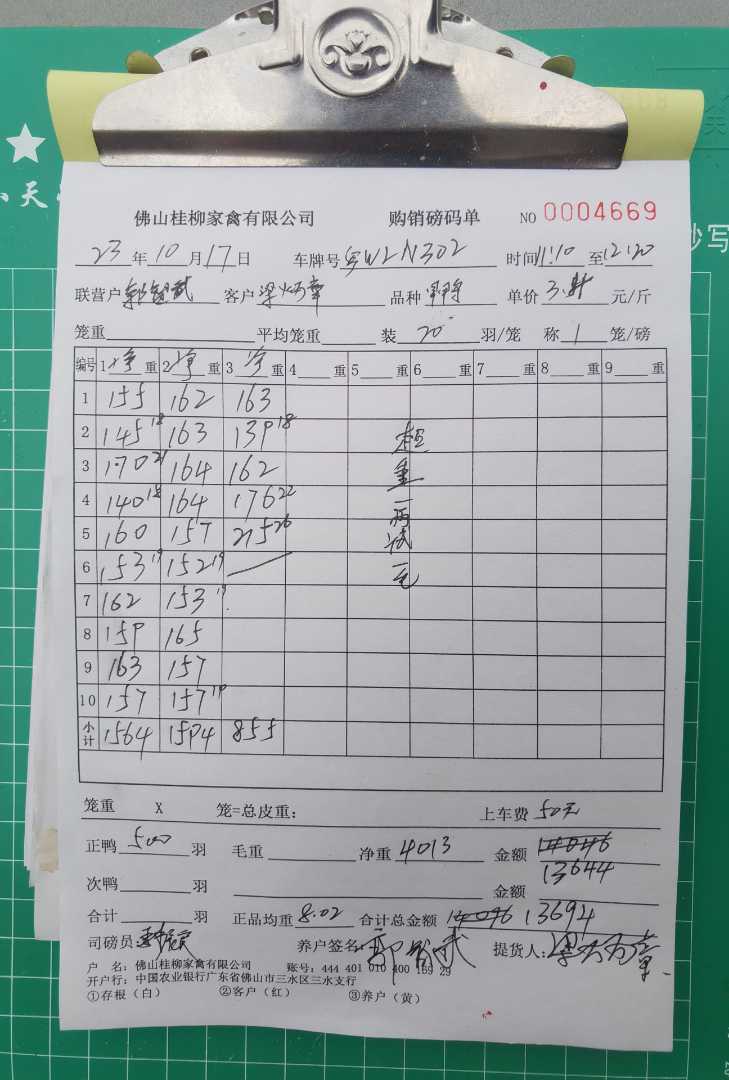 佛山桂柳家禽有限公司 购销磅码单 NO 0004669
23 年 10 月 17 日 车牌号 粤WLN302 时间 11:10 至 12:20
联营户 客户 品种 单价 3. 元/斤
笼重 平均笼重 装 20 羽/笼 称 1 笼/磅
编号 1 净 重 2 净 重 3 净 重 4 重 5 重 6 重 7 重 8 重 9 重
1 155 162 163
2 145 18 163 139 18
3 170 21 164 162
4 140 18 164 176 22
5 160 157 215 26
6 153 19 152 19
7 162 153 19
8 159 165
9 163 157
10 157 157 19
小计 1564 1594 855
超重一两减一毛
笼重 X 笼=总皮重: 上车费 50元
正鸭 500 羽 毛重 净重 4013 金额 14046
13644
次鸭 羽 金额
合计 羽 正品均重 8.02 合计总金额 14096 13694
司磅员: 养户签名: 提货人:
户 名: 佛山桂柳家禽有限公司 账号: 444 401 010 400 169 29
开户行: 中国农业银行广东省佛山市三水区三水支行
①存根(白) ②客户(红) ③养户(黄)